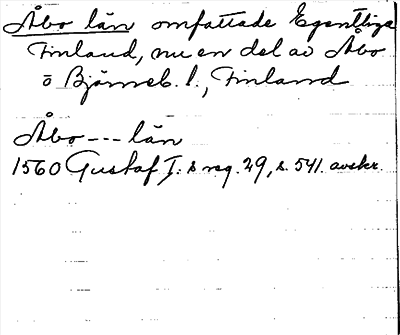 Åbo län omfattade Egentliga
Finland, nu en del av Åbo
o Björneb. l., Finland
Åbo --- län
1560 Gustaf I:s reg. 29, s. 541. avskr.